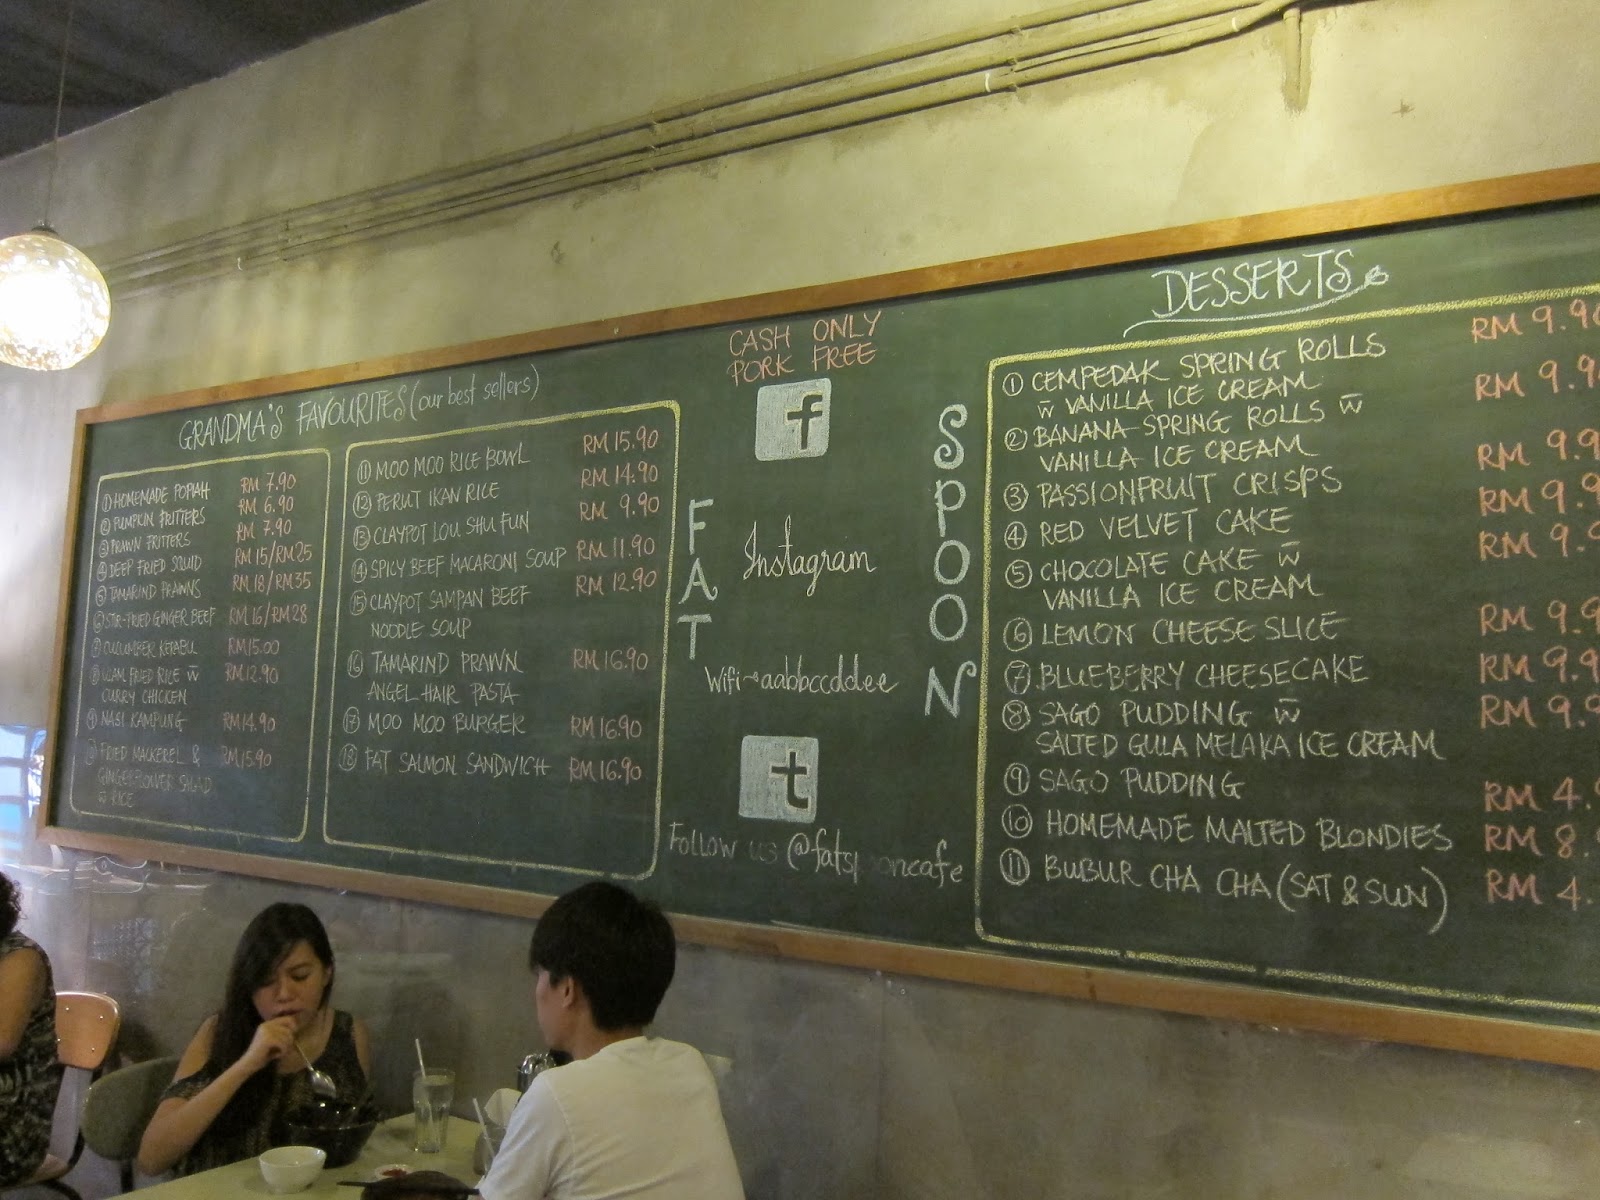 GRANDMA'S FAVOURITES (our best sellers)
① HOMEMADE POPIAH RM 7.90
② PUMPKIN FRITTERS RM 6.90
③ PRAWN FRITTERS RM 7.90
④ DEEP FRIED SQUID RM 15/RM25
⑤ TAMARIND PRAWNS RM 18/RM35
⑥ STIR-FRIED GINGER BEEF RM 16/RM28
⑦ CUCUMBER KERABU RM15.00
⑧ ULAM FRIED RICE w̄ RM12.90
CURRY CHICKEN
⑨ NASI KAMPUNG RM14.90
⑩ FRIED MACKEREL & RM15.90
GINGERFLOWER SALAD
w̄ RICE
⑪ MOO MOO RICE BOWL RM 15.90
⑫ PERUT IKAN RICE RM 14.90
⑬ CLAYPOT LOU SHU FUN RM 9.90
⑭ SPICY BEEF MACARONI SOUP RM 11.90
⑮ CLAYPOT SAMPAN BEEF RM 12.90
NOODLE SOUP
⑯ TAMARIND PRAWN RM 16.90
ANGEL HAIR PASTA
⑰ MOO MOO BURGER RM 16.90
⑱ FAT SALMON SANDWICH RM 16.90
CASH ONLY
PORK FREE
f
FAT
SPOON
Instagram
Wifi~aabbccddee
t
Follow us @fatspooncafe
DESSERTS
① CEMPEDAK SPRING ROLLS RM 9.90
w̄ VANILLA ICE CREAM
② BANANA SPRING ROLLS w̄ RM 9.90
VANILLA ICE CREAM
③ PASSIONFRUIT CRISPS RM 9.9
④ RED VELVET CAKE RM 9.9
⑤ CHOCOLATE CAKE w̄ RM 9.9
VANILLA ICE CREAM
⑥ LEMON CHEESE SLICE RM 9.9
⑦ BLUEBERRY CHEESECAKE RM 9.9
⑧ SAGO PUDDING w̄ RM 9.9
SALTED GULA MELAKA ICE CREAM
⑨ SAGO PUDDING RM 4.
⑩ HOMEMADE MALTED BLONDIES RM 8.
⑪ BUBUR CHA CHA (SAT & SUN) RM 4.